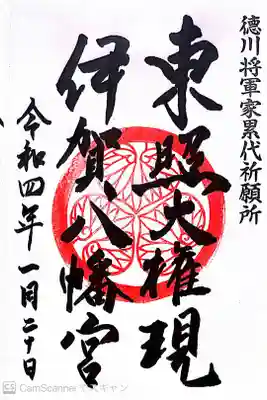 徳川将軍家累代祈願所
東照大権現
伊賀八幡宮
令和四年一月二十日
CS CamScanner